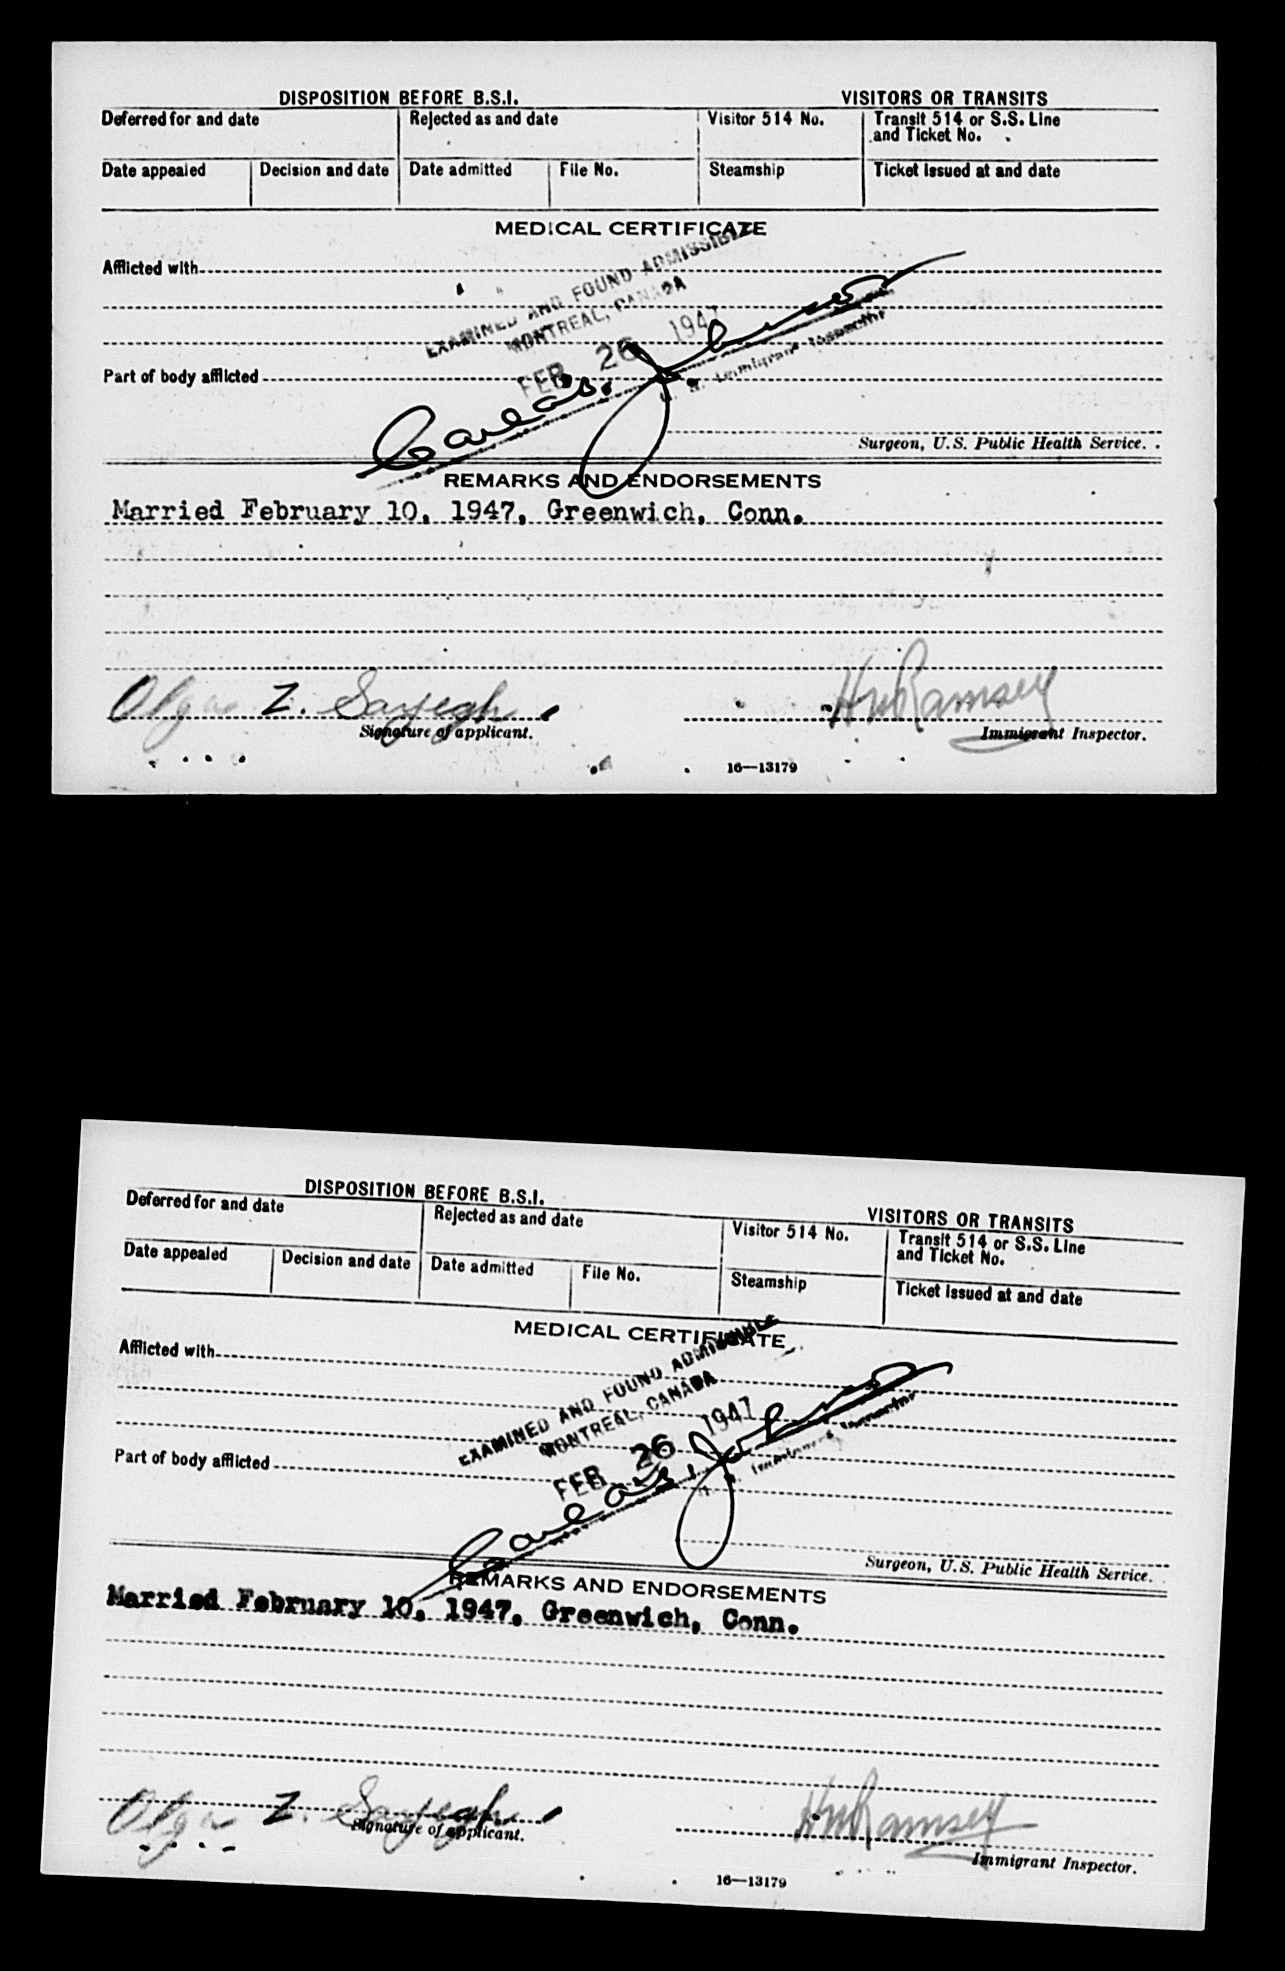 DISPOSITION BEFORE B.S.I. VISITORS OR TRANSITS
Deferred for and date Rejected as and date Visitor 514 No. Transit 514 or S.S. Line and Ticket No.
Date appealed Decision and date Date admitted File No. Steamship Ticket issued at and date
MEDICAL CERTIFICATE
Afflicted with
EXAMINED AND FOUND ADMISSIBLE
MONTREAL, CANADA
FEB 26 1947
U. S. Immigrant Inspector
Part of body afflicted
Surgeon, U.S. Public Health Service.
REMARKS AND ENDORSEMENTS
Married February 10, 1947, Greenwich, Conn.
Olga Z. Sayegh
Signature of applicant. Immigrant Inspector.
16—13179
DISPOSITION BEFORE B.S.I. VISITORS OR TRANSITS
Deferred for and date Rejected as and date Visitor 514 No. Transit 514 or S.S. Line and Ticket No.
Date appealed Decision and date Date admitted File No. Steamship Ticket issued at and date
MEDICAL CERTIFICATE
Afflicted with
EXAMINED AND FOUND ADMISSIBLE
MONTREAL, CANADA
FEB 26 1947
Immigrant Inspector
Part of body afflicted
Surgeon, U.S. Public Health Service.
REMARKS AND ENDORSEMENTS
Married February 10, 1947, Greenwich, Conn.
Olga Z. Sayegh
Signature of applicant. Immigrant Inspector.
16—13179